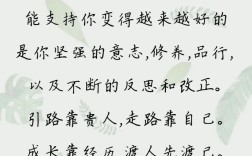 能支持你变得越来越好的
是你坚强的意志,修养,品行,
以及不断的反思和改正。
引路靠贵人,走路靠自己。
成长靠经历,渡人先渡己。